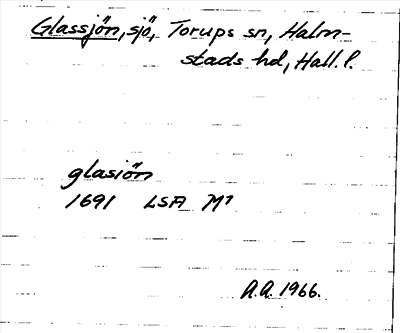 Glassjön, sjö, Torups sn, Halm-
stads hd, Hall. l.
glasiön
1691 LSA M7
A.A. 1966.